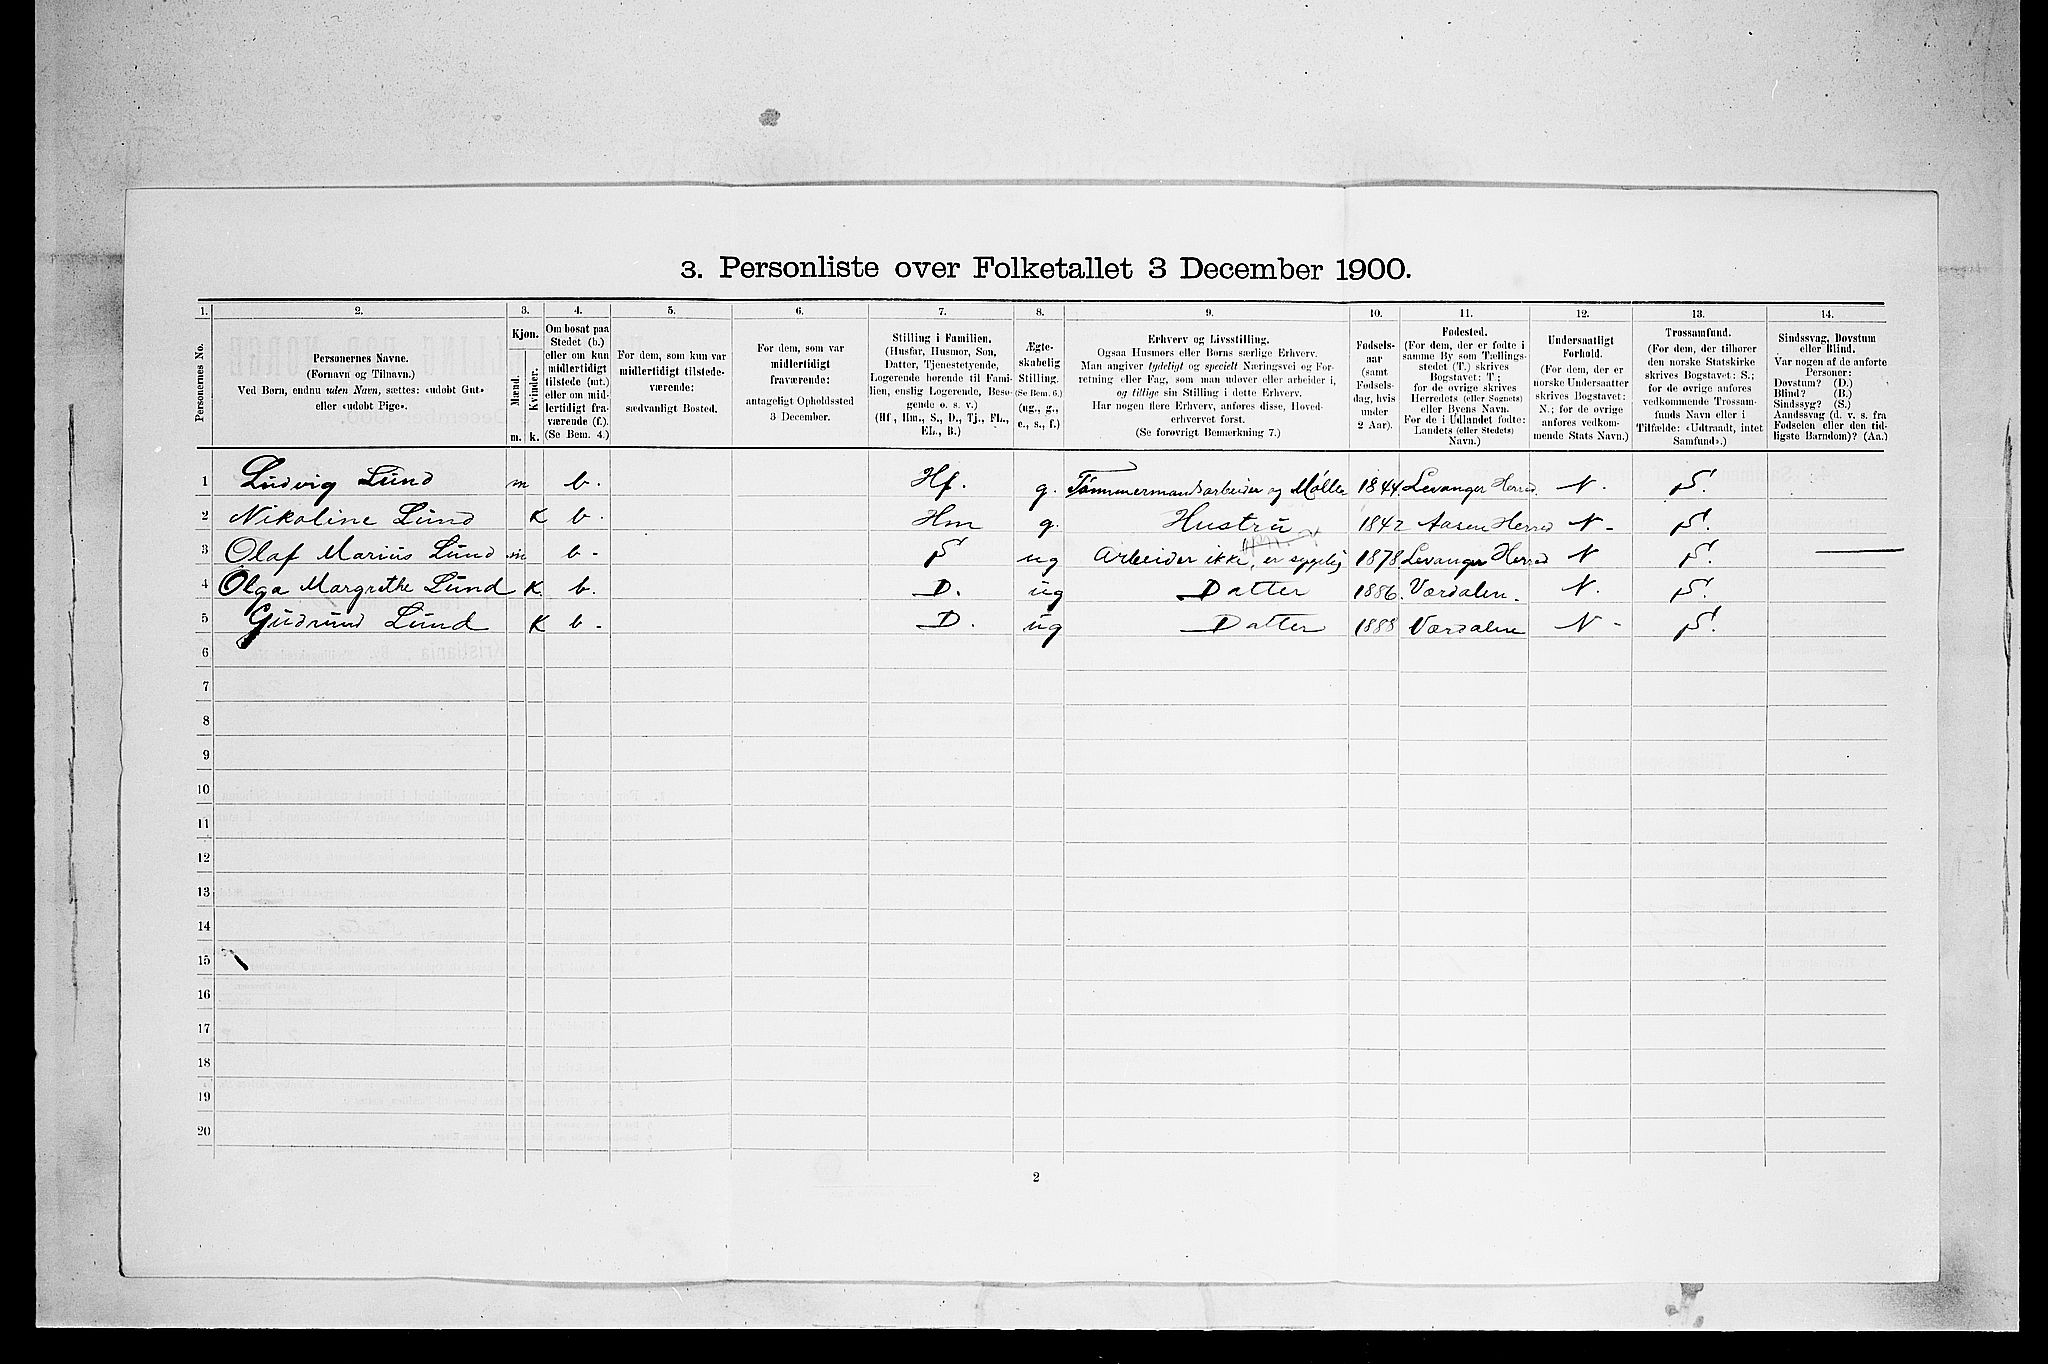 3. Personliste over Folketallet 3 December 1900.
1. 2. 3. 4. 5. 6. 7. 8. 9. 10. 11. 12. 13. 14.
Personernes No.
Personernes Navne.
(Fornavn og Tilnavn.)
Ved Børn, endnu uden Navn, sættes: «udøbt Gut»
eller «udøbt Pige».
Kjøn.
Mænd. Kvinder.
m. k.
Om bosat paa
Stedet (b.)
eller om kun
midlertidigt
tilstede (mt.)
eller om mid-
lertidigt fra-
værende (f.).
(Se Bem. 4.)
For dem, som kun var
midlertidigt tilstede-
værende:
sædvanligt Bosted.
For dem, som var
midlertidigt
fraværende:
antageligt Opholdssted
3 December.
Stilling i Familien.
(Husfar, Husmor, Søn,
Datter, Tjenestetyende,
Logerende hørende til Fami-
lien, enslig Logerende, Besø-
gende o. s. v.)
(Hf., Hm., S., D., Tj., FL.,
EL., B.)
Ægte-
skabelig
Stilling.
(Se Bem. 6.)
(ug., g.,
e., s., f.)
Erhverv og Livsstilling.
Ogsaa Husmors eller Børns særlige Erhverv.
Man angiver tydeligt og specielt Næringsvei og For-
retning eller Fag, som man udøver eller arbeider i,
og tillige sin Stilling i dette Erhverv.
Har nogen flere Erhverv, anføres disse, Hoved-
erhvervet først.
(Se forøvrigt Bemærkning 7.)
Fødsels-
aar
(samt
Fødsels-
dag, hvis
under
2 Aar).
Fødested.
(For dem, der er fødte i
samme By som Tællings-
stedet (T.) skrives
Bogstavet: T.;
for de øvrige skrives
Herredets (eller Sognets)
eller Byens Navn.
For de i Udlandet fødte:
Landets (eller Stedets)
Navn.)
Undersaatligt
Forhold.
(For dem, der er
norske Undersaatter
skrives Bogstavet:
N.; for de øvrige
anføres vedkom-
mende Stats Navn.)
Trossamfund.
(For dem, der tilhører
den norske Statskirke
skrives Bogstavet: S.;
for de øvrige anføres
vedkommende Trossam-
funds Navn eller i
Tilfælde: «Udtraadt, intet
Samfund».)
Sindssvag, Døvstum
eller Blind.
Var nogen af de anførte
Personer:
Døvstum? (D.)
Blind? (B.)
Sindssyg? (S.)
Aandssvag (d. v. s. fra
Fødselen eller den tid-
ligste Barndom)? (Aa.)
1 Ludvig Lund m b. Hf. g. Tømmermandsarbeider og Møller 1844. Levanger Herred. N. S.
2 Nikoline Lund K b. Hm g. Hustru 1842 Aasen Herred N- S.
3 Olaf Marius Lund m b- S ug Arbeider ikke, er sygelig 1878 Levanger Herred N S.
4 Olga Margrethe Lund K. b. D. ug Datter 1886. Værdalen. N. S.
5 Gudrund Lund K b- D. ug Datter 1888 Værdalen N- S.
6
7
8
9
10
11
12
13
14
15
16
17
18
19
20
2